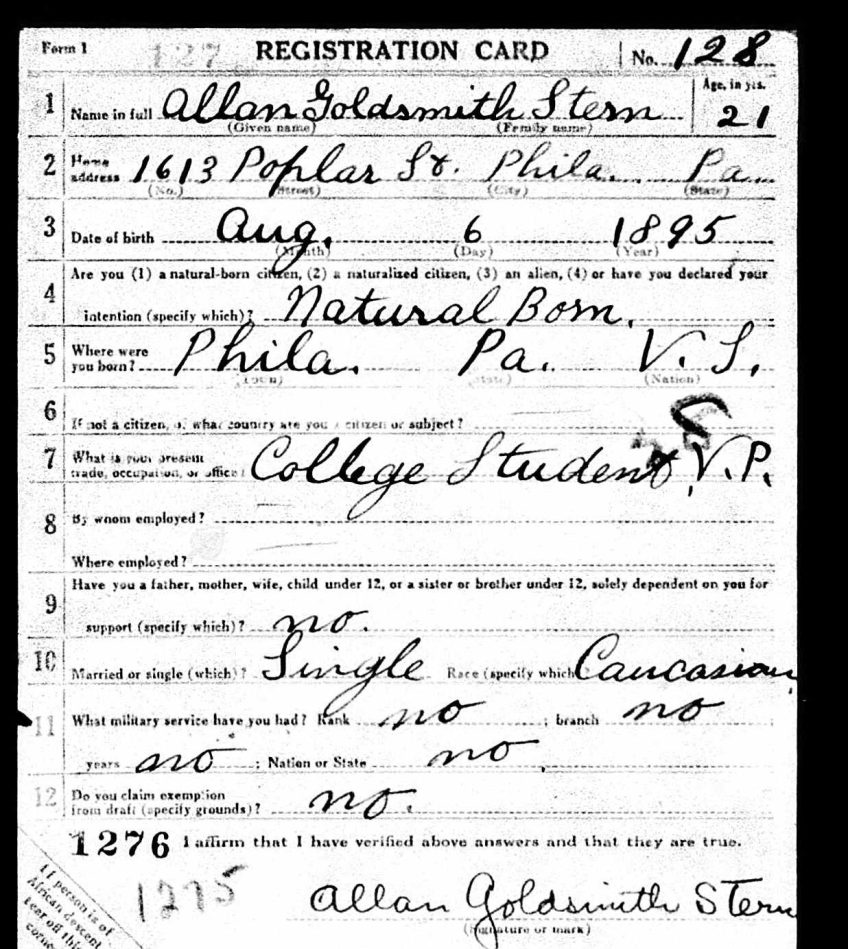 Form 1 127 REGISTRATION CARD No. 128
1 Name in full Allan Goldsmith Stern Age, in yrs. 21
(Given name) (Family name)
2 Home address 1613 Poplar St. Phila. Pa.
(No.) (Street) (City) (State)
3 Date of birth Aug. 6 1895
(Month) (Day) (Year)
4 Are you (1) a natural-born citizen, (2) a naturalized citizen, (3) an alien, (4) or have you declared your
intention (specify which)? Natural Born.
5 Where were you born? Phila. Pa. U.S.
(Town) (State) (Nation)
6 If not a citizen, of what country are you a citizen or subject?
7 What is your present trade, occupation, or office? College Student, U.P.
8 By whom employed?
Where employed?
9 Have you a father, mother, wife, child under 12, or a sister or brother under 12, solely dependent on you for
support (specify which)? no.
10 Married or single (which)? Single Race (specify which Caucasian
11 What military service have you had? Rank no ; branch no
years no ; Nation or State no
12 Do you claim exemption from draft (specify grounds)? no.
1276 I affirm that I have verified above answers and that they are true.
1275
Allan Goldsmith Stern
(Signature or mark)
If person is of
African descent
tear off this
corner